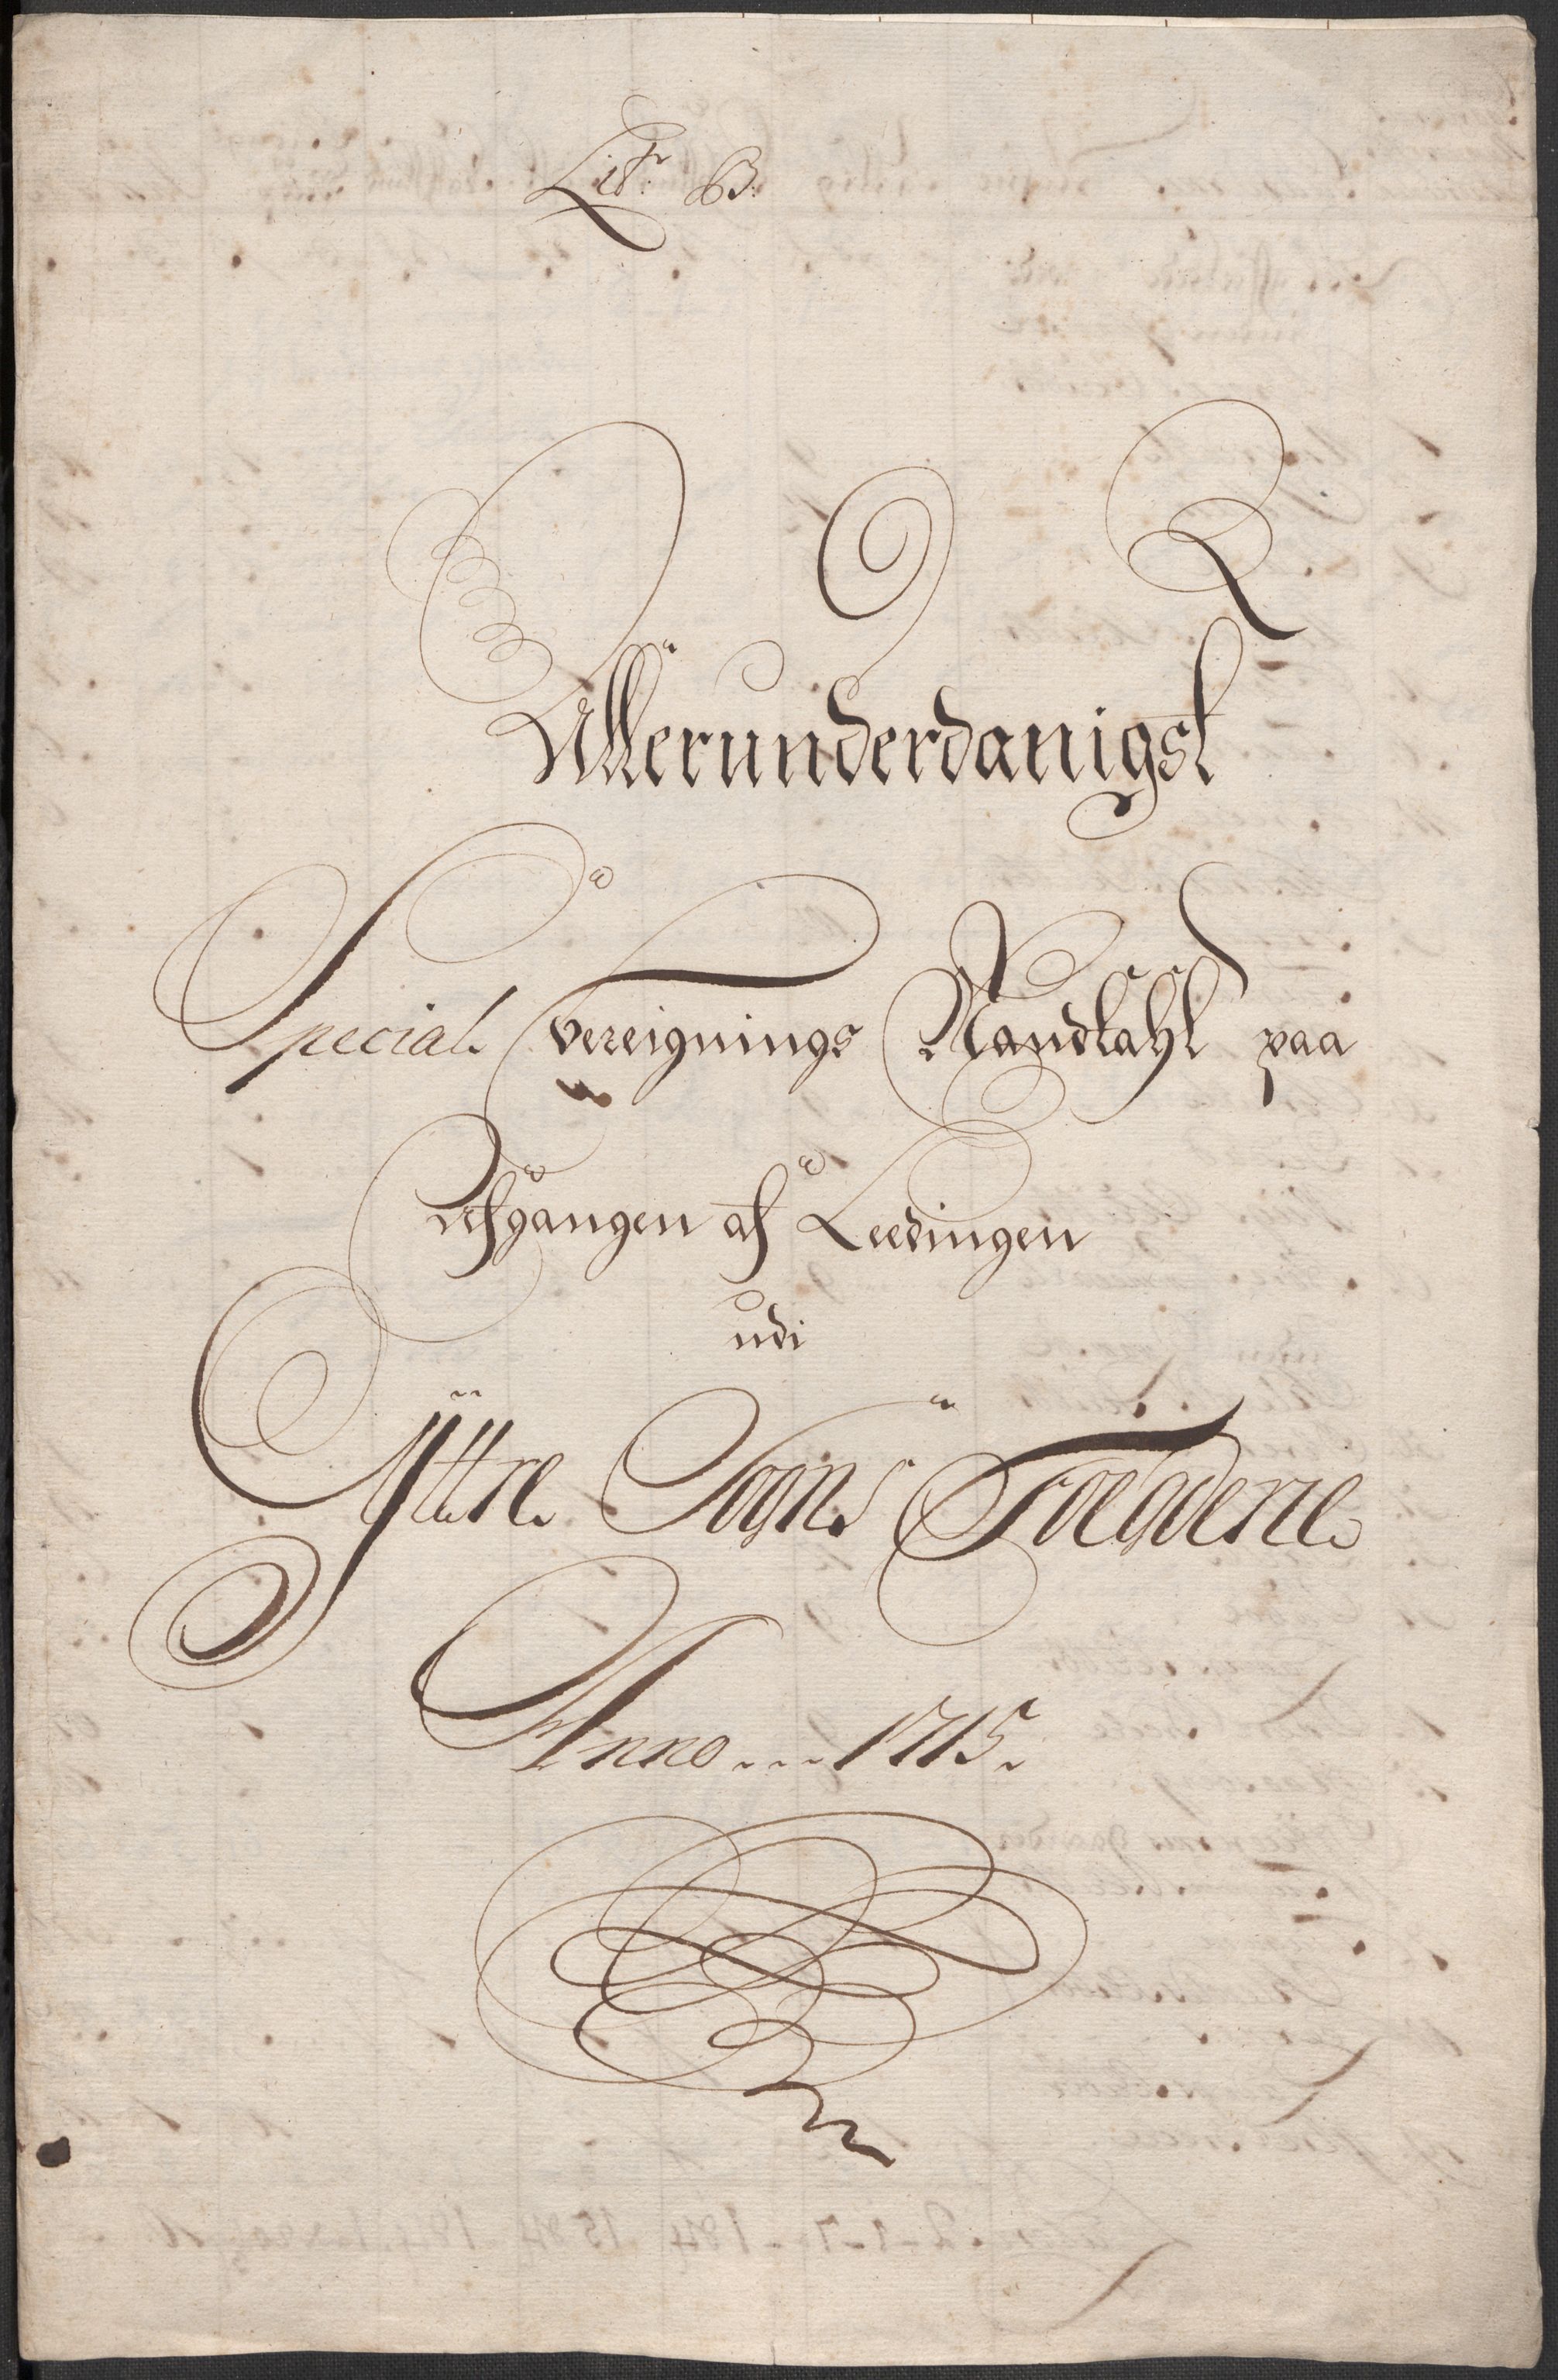 Litr: B:
Allerunderdanigst
Special Bereignings Mandtahl paa
Afgangen af Leedingen
udi
Ÿttre Sogns Foegderie
Anno... 1715.